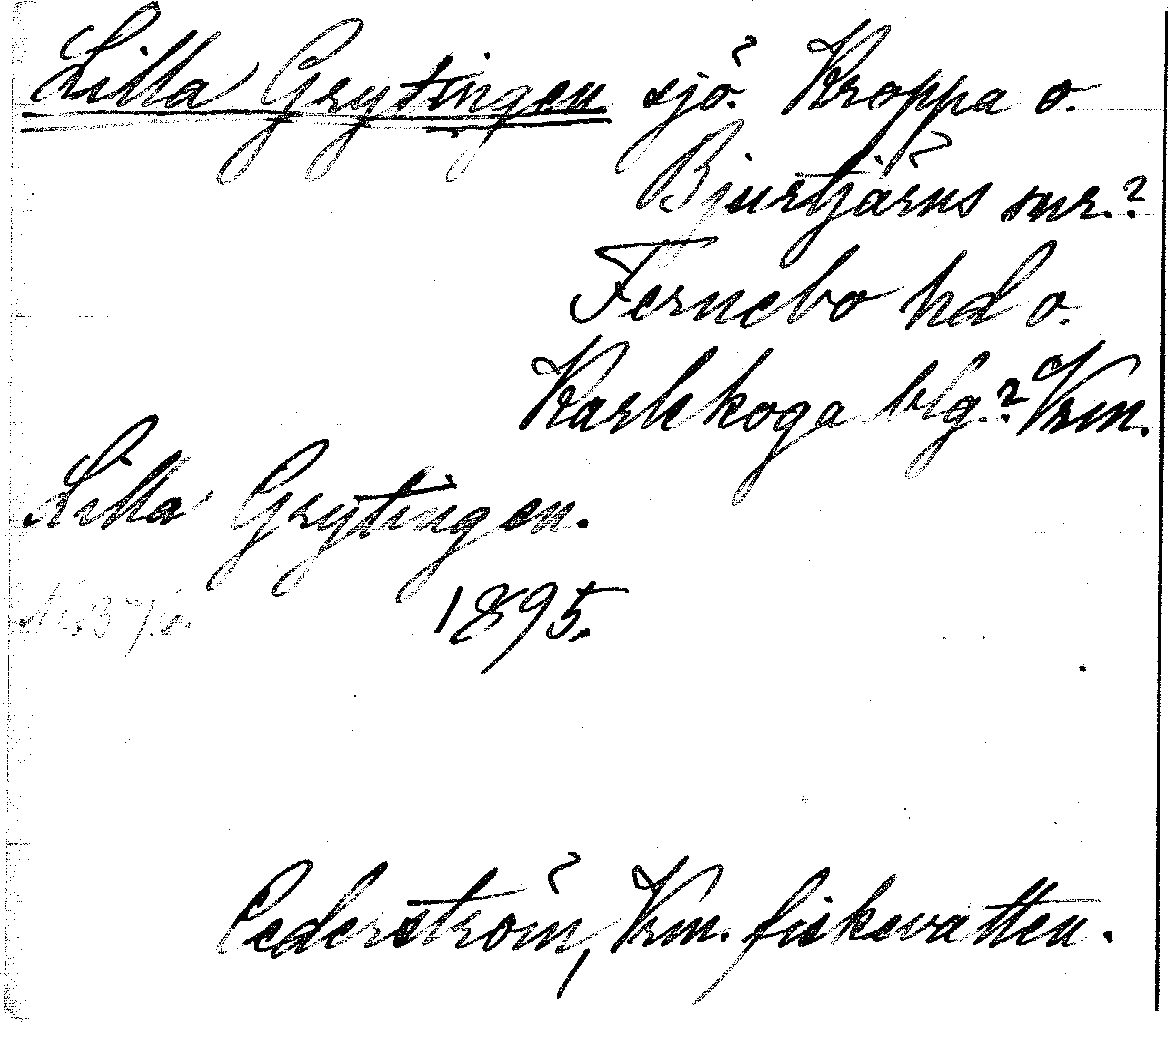 Lilla Grytingen sjö. Kroppa o.
Bjurtjärns snr.?
Fernebo hd o.
Karlskoga blg? Vrm.
Lilla Grytingen.
1895.
Cederström, Vrm. fiskevatten.